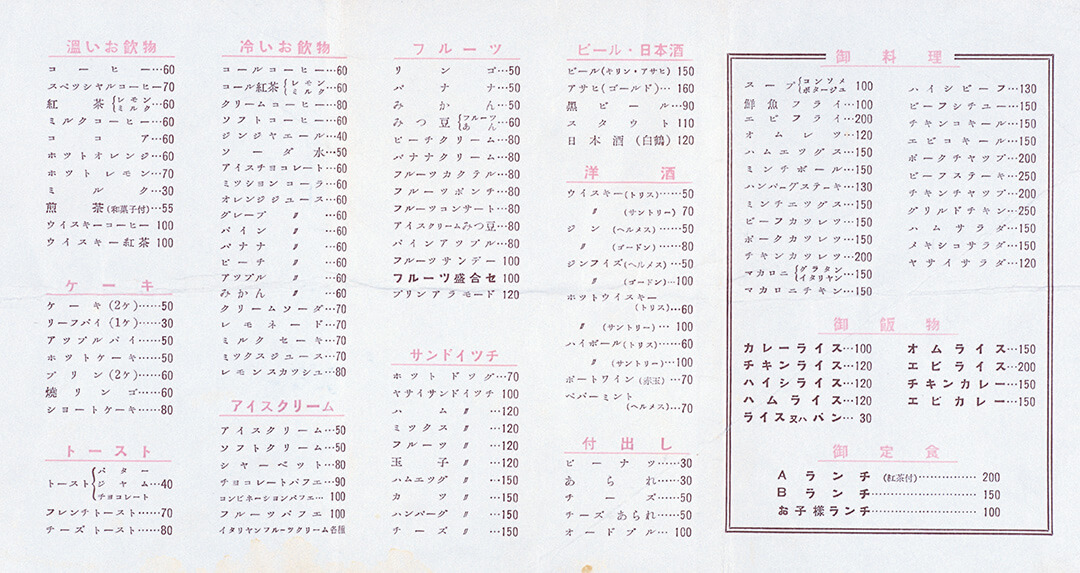 温いお飲物
コーヒー…60
スペッシャルコーヒー70
紅茶{レモン ミルク…60
ミルクコーヒー……60
ココア…60
ホットオレンジ…60
ホットレモン…70
ミルク…30
煎茶(和菓子付)…55
ウイスキーコーヒー 100
ウイスキー紅茶 100
ケーキ
ケーキ(2ケ)……50
リーフパイ(1ケ)…30
アップルパイ……50
ホットケーキ……50
プリン(2ケ)……60
焼リンゴ……60
ショートケーキ……80
トースト
トースト{バター ジャム チョコレート…40
フレンチトースト……70
チーズトースト……80
冷いお飲物
コールコーヒー…60
コール紅茶{レモン ミルク…60
クリームコーヒー…80
ソフトコーヒー…60
ジンジャエール…40
ソーダ水…50
アイスチョコレート…60
ミッションコーラ…60
オレンジジュース…60
グレープ〃…60
パイン〃…60
バナナ〃…60
ピーチ〃…60
アップル〃…60
みかん〃…60
クリームソーダ…70
レモネード…70
ミルクセーキ…70
ミックスジュース…70
レモンスカッシュ…80
アイスクリーム
アイスクリーム…50
ソフトクリーム…50
シャーベット…80
チョコレートパフエ…90
コンビネーションパフエ… 100
フルーツパフエ 100
イタリヤンフルーツクリーム各種
フルーツ
リンゴ…50
バナナ…50
みかん…50
みつ豆{フルーツ あん…60
ピーチクリーム…80
バナナクリーム…80
フルーツカクテル…80
フルーツポンチ…80
フルーツコンサート…80
アイスクリームみつ豆…80
パインアップル…80
フルーツサンデー…100
フルーツ盛合セ 100
プリンアラモード 120
サンドイツチ
ホットドッグ…70
ヤサイサンドイツチ 100
ハム〃…120
ミックス〃…120
フルーツ〃…120
玉子〃…120
ハムエッグ〃…150
カツ〃…150
ハンバーグ〃…150
チーズ〃…150
ビール・日本酒
ビール(キリン・アサヒ) 150
アサヒ(ゴールド)… 160
黒ビール…90
スタウト 110
日本酒(白鶴) 120
洋酒
ウイスキー(トリス)……50
〃(サントリー) 70
ジン(ヘルメス)……50
〃(ゴードン)……80
ジンフイズ(ヘルメス)…50
〃(ゴードン)… 100
ホットウイスキー
(トリス)…60
〃(サントリー)… 100
ハイボール(トリス)……60
〃(サントリー)…100
ポートワイン(赤玉)…70
ペパーミント
(ヘルメス)…70
付出し
ピーナツ……30
あられ……30
チーズ……50
チーズあられ……50
オードブル… 100
御料理
スープ{コンソメ ポタージユ 100
鮮魚フライ…100
エビフライ…200
オムレツ…120
ハムエッグス…150
ミンチボール…150
ハンバーグステーキ…130
ミンチエッグス…150
ビーフカツレツ…150
ポークカツレツ…150
チキンカツレツ…200
マカロニ{グラタン イタリヤン…150
マカロニチキン…150
ハイシビーフ…130
ビーフシチュー…150
チキンコキール…150
エビコキール…150
ポークチャップ…200
ビーフステーキ…250
チキンチャップ…200
グリルドチキン…250
ハムサラダ…150
メキシコサラダ…150
ヤサイサラダ…120
御飯物
カレーライス…100
チキンライス…120
ハイシライス…120
ハムライス…120
ライス又ハパン… 30
オムライス…150
エビライス…200
チキンカレー…150
エビカレー…150
御定食
Aランチ(紅茶付)…………… 200
Bランチ……………………… 150
お子様ランチ……………………… 100